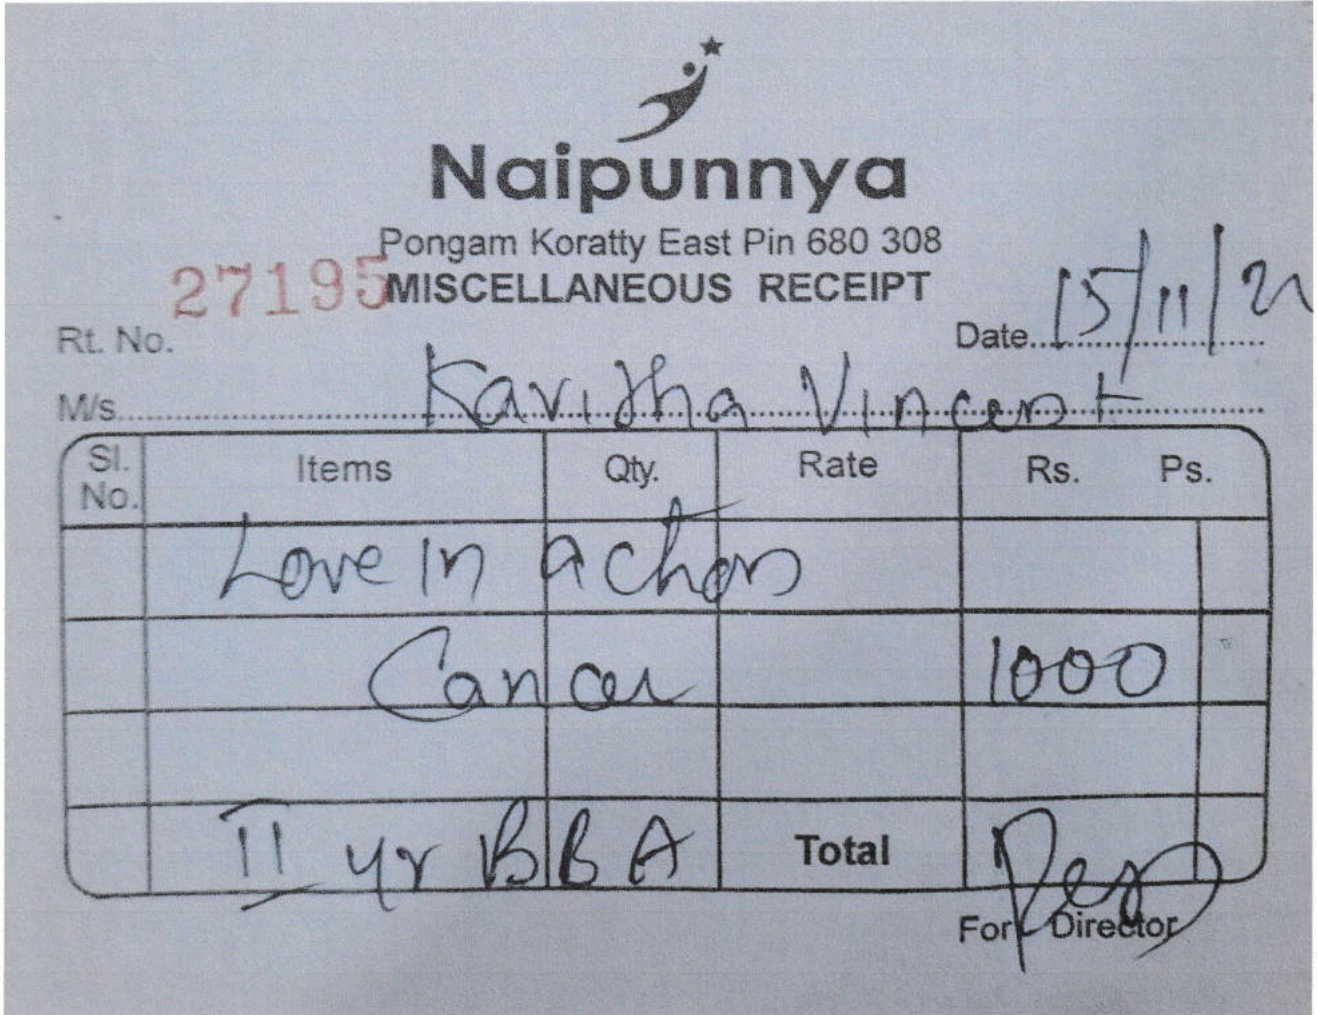 Naipunnya
Pongam Koratty East Pin 680 308
27195 MISCELLANEOUS RECEIPT
Rt. No. Date 15/11/21
M/s Kavitha Vincent
Sl. No. Items Qty. Rate Rs. Ps.
Love in action
Cancer 1000
II yr BBA Total
For Director